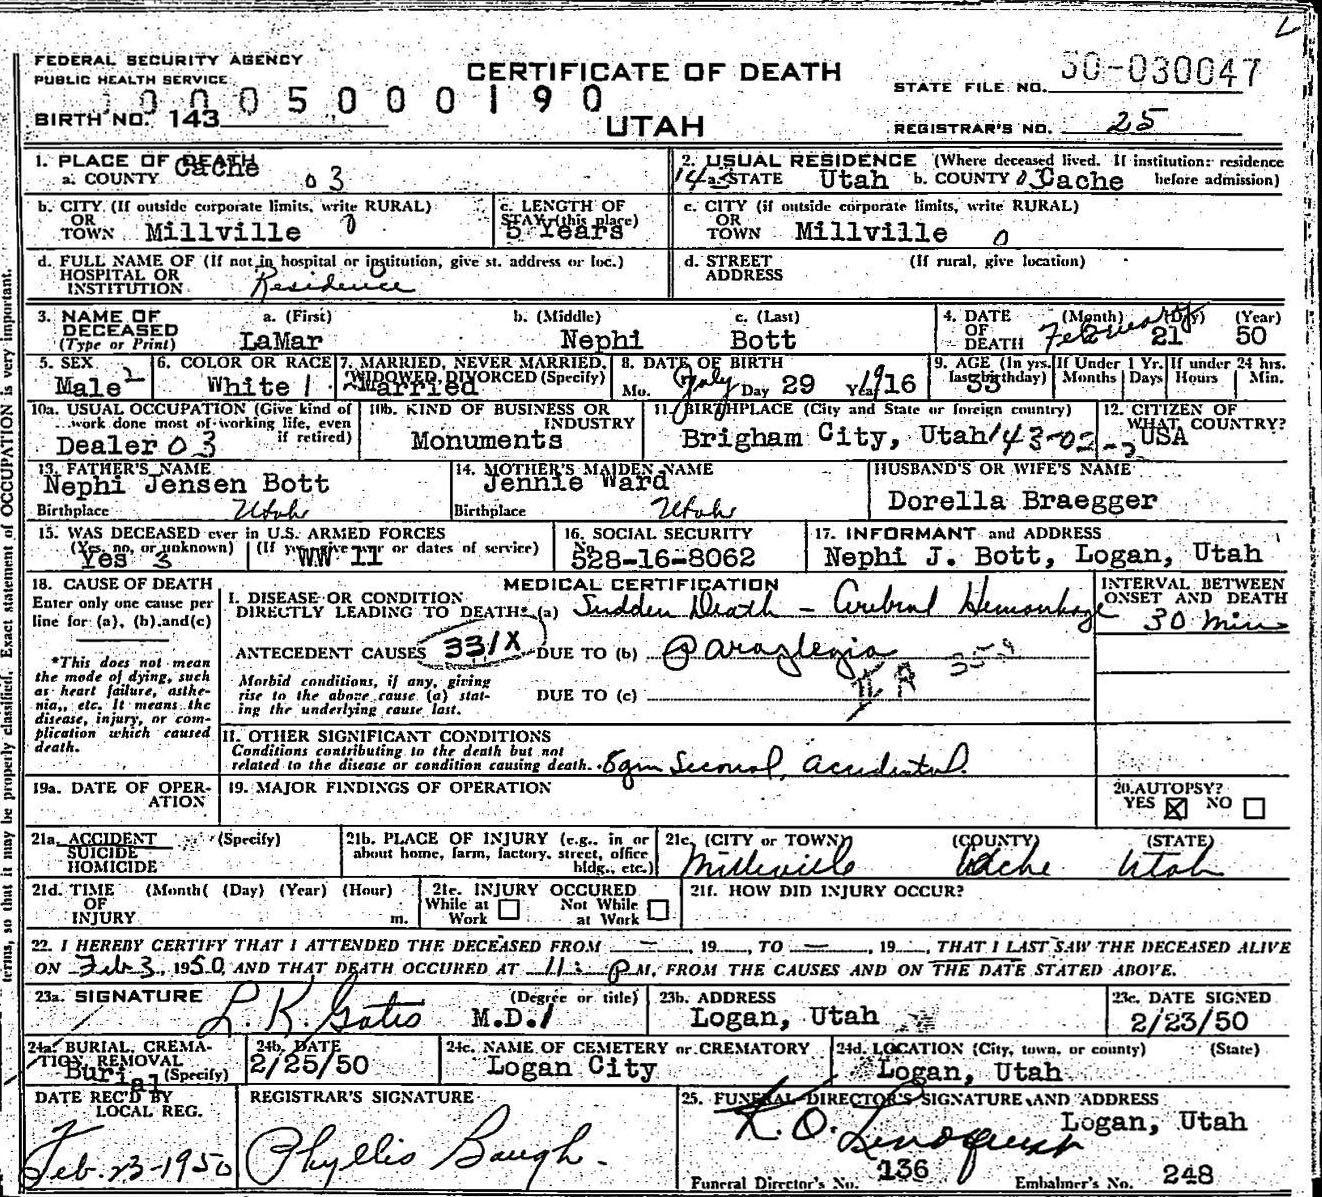 FEDERAL SECURITY AGENCY
PUBLIC HEALTH SERVICE
CERTIFICATE OF DEATH
STATE FILE NO. 50-030047
10005000190
BIRTH NO. 143
UTAH
REGISTRAR'S NO. 25
1. PLACE OF DEATH
a. COUNTY Cache 03
2. USUAL RESIDENCE (Where deceased lived. If institution: residence before admission)
a. STATE Utah b. COUNTY 03 Cache
b. CITY (If outside corporate limits, write RURAL) OR TOWN Millville 0
c. LENGTH OF STAY (this place) 5 Years
c. CITY (if outside corporate limits, write RURAL) OR TOWN Millville 0
d. FULL NAME OF (If not in hospital or institution, give st. address or loc.) HOSPITAL OR INSTITUTION Residence
d. STREET ADDRESS (If rural, give location)
3. NAME OF DECEASED (Type or Print)
a. (First) LaMar
b. (Middle) Nephi
c. (Last) Bott
4. DATE OF DEATH (Month) (Day) (Year) February 21 50
5. SEX Male 2
6. COLOR OR RACE White 1
7. MARRIED, NEVER MARRIED, WIDOWED, DIVORCED (Specify) Married
8. DATE OF BIRTH Mo. July Day 29 Year 1916
9. AGE (In yrs. last birthday) 33
If Under 1 Yr. Months Days
If under 24 hrs. Hours Min.
10a. USUAL OCCUPATION (Give kind of work done most of working life, even if retired) Dealer 03
10b. KIND OF BUSINESS OR INDUSTRY Monuments
11. BIRTHPLACE (City and State or foreign country) Brigham City, Utah 143-02
12. CITIZEN OF WHAT COUNTRY? USA
13. FATHER'S NAME Nephi Jensen Bott
Birthplace Utah
14. MOTHER'S MAIDEN NAME Jennie Ward
Birthplace Utah
HUSBAND'S OR WIFE'S NAME
Dorella Braegger
15. WAS DECEASED ever in U.S. ARMED FORCES
(Yes, no, or unknown) (If yes, give war or dates of service)
Yes 3 WW 11
16. SOCIAL SECURITY No. 528-16-8062
17. INFORMANT and ADDRESS
Nephi J. Bott, Logan, Utah
18. CAUSE OF DEATH
Enter only one cause per line for (a), (b) and (c)
*This does not mean the mode of dying, such as heart failure, asthenia, etc. It means the disease, injury, or complication which caused death.
MEDICAL CERTIFICATION
I. DISEASE OR CONDITION DIRECTLY LEADING TO DEATH* (a) Sudden Death - Cerebral Hemorrhage
INTERVAL BETWEEN ONSET AND DEATH
30 min
ANTECEDENT CAUSES 331X DUE TO (b) Paraplegia
Morbid conditions, if any, giving rise to the above cause (a) stating the underlying cause last.
DUE TO (c)
II. OTHER SIGNIFICANT CONDITIONS
Conditions contributing to the death but not related to the disease or condition causing death. 5gm Seconal, accidental.
19a. DATE OF OPERATION
19. MAJOR FINDINGS OF OPERATION
20. AUTOPSY?
YES X NO
21a. ACCIDENT SUICIDE HOMICIDE (Specify)
21b. PLACE OF INJURY (e.g., in or about home, farm, factory, street, office bldg., etc.)
21c. (CITY OR TOWN) (COUNTY) (STATE)
Milleville Cache Utah
21d. TIME OF INJURY (Month) (Day) (Year) (Hour) m.
21e. INJURY OCCURED
While at Work Not While at Work
21f. HOW DID INJURY OCCUR?
22. I HEREBY CERTIFY THAT I ATTENDED THE DECEASED FROM -, 19, TO -, 19, THAT I LAST SAW THE DECEASED ALIVE
ON Feb 3, 1950, AND THAT DEATH OCCURED AT 11: P M, FROM THE CAUSES AND ON THE DATE STATED ABOVE.
23a. SIGNATURE (Degree or title)
L. K. Gates M.D.
23b. ADDRESS
Logan, Utah
23c. DATE SIGNED
2/23/50
24a. BURIAL, CREMATION, REMOVAL (Specify) Burial
24b. DATE
2/25/50
24c. NAME OF CEMETERY or CREMATORY
Logan City
24d. LOCATION (City, town, or county) (State)
Logan, Utah
DATE REC'D BY LOCAL REG.
Feb. 23-1950
REGISTRAR'S SIGNATURE
Phyllis Baugh.
25. FUNERAL DIRECTOR'S SIGNATURE AND ADDRESS
K. O. Lindquist Logan, Utah
Funeral Director's No. 136 Embalmer's No. 248
terms, so that it may be properly classified. Exact statement of OCCUPATION is very important.